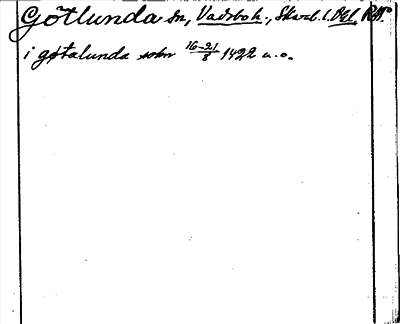 Götlunda sn, Vadsbo h., Skarab. l.
i gøtalunda sokn 16-21/8 1422 u.o.